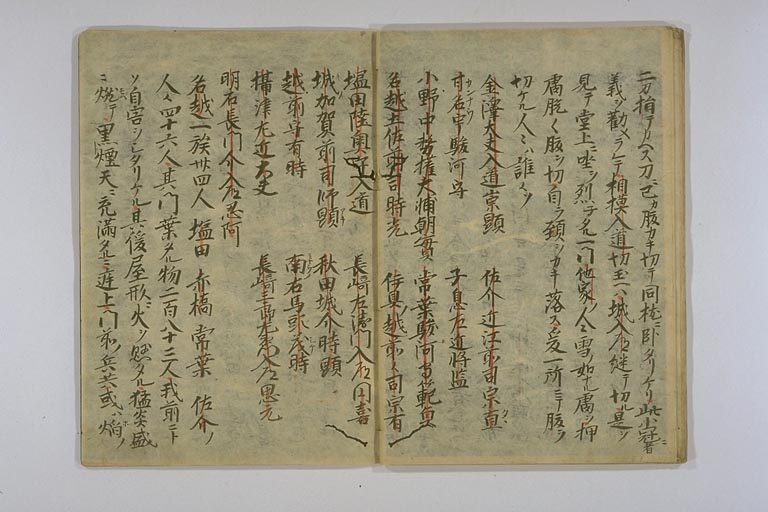 二刀指テカヘス刀ニ己カ腹カキ切テ同枕ニ卧タリケリ此小冠者ニ
義ヲ勸メラレテ相模入道切玉ヘハ城入道継テ切是ヲ
見テ堂上ニ坐ヲ烈子タル一門他家ノ人々雪ノ如ナル膚ヲ押
膚脱々腹ヲ切自ラ頚ヲカキ落ス爰一所ニテ腹ヲ
切ケル人々ハ誰々ソ
金澤大夫入道宗顕 佐介近江前司宗直
甘名宇駿河守 子息左近将監
小野中務権大浦朝貫 常葉駿河守範貞
名越土佐前司時元 伊具ノ越前々司宗有
塩田陸奥守入道 長崎左衛門入道円喜
城加賀前司師顕 秋田城介時顕
越前守有時 南右馬頭茂時
攝津左近大夫 長崎三郎左衛門入道思元
明石長門介入道忍阿
名越一族卅四人 塩田 赤橋 常葉 佐介ノ
人々四十六人其門葉タル物二百八十三人我前ニト
ソ自害シタリケル其後屋形ニ火ヲ懸タル猛炎盛
ニ燃テ黒煙天ニ充満タルニ 上門前ノ兵共或ハ焔ノ